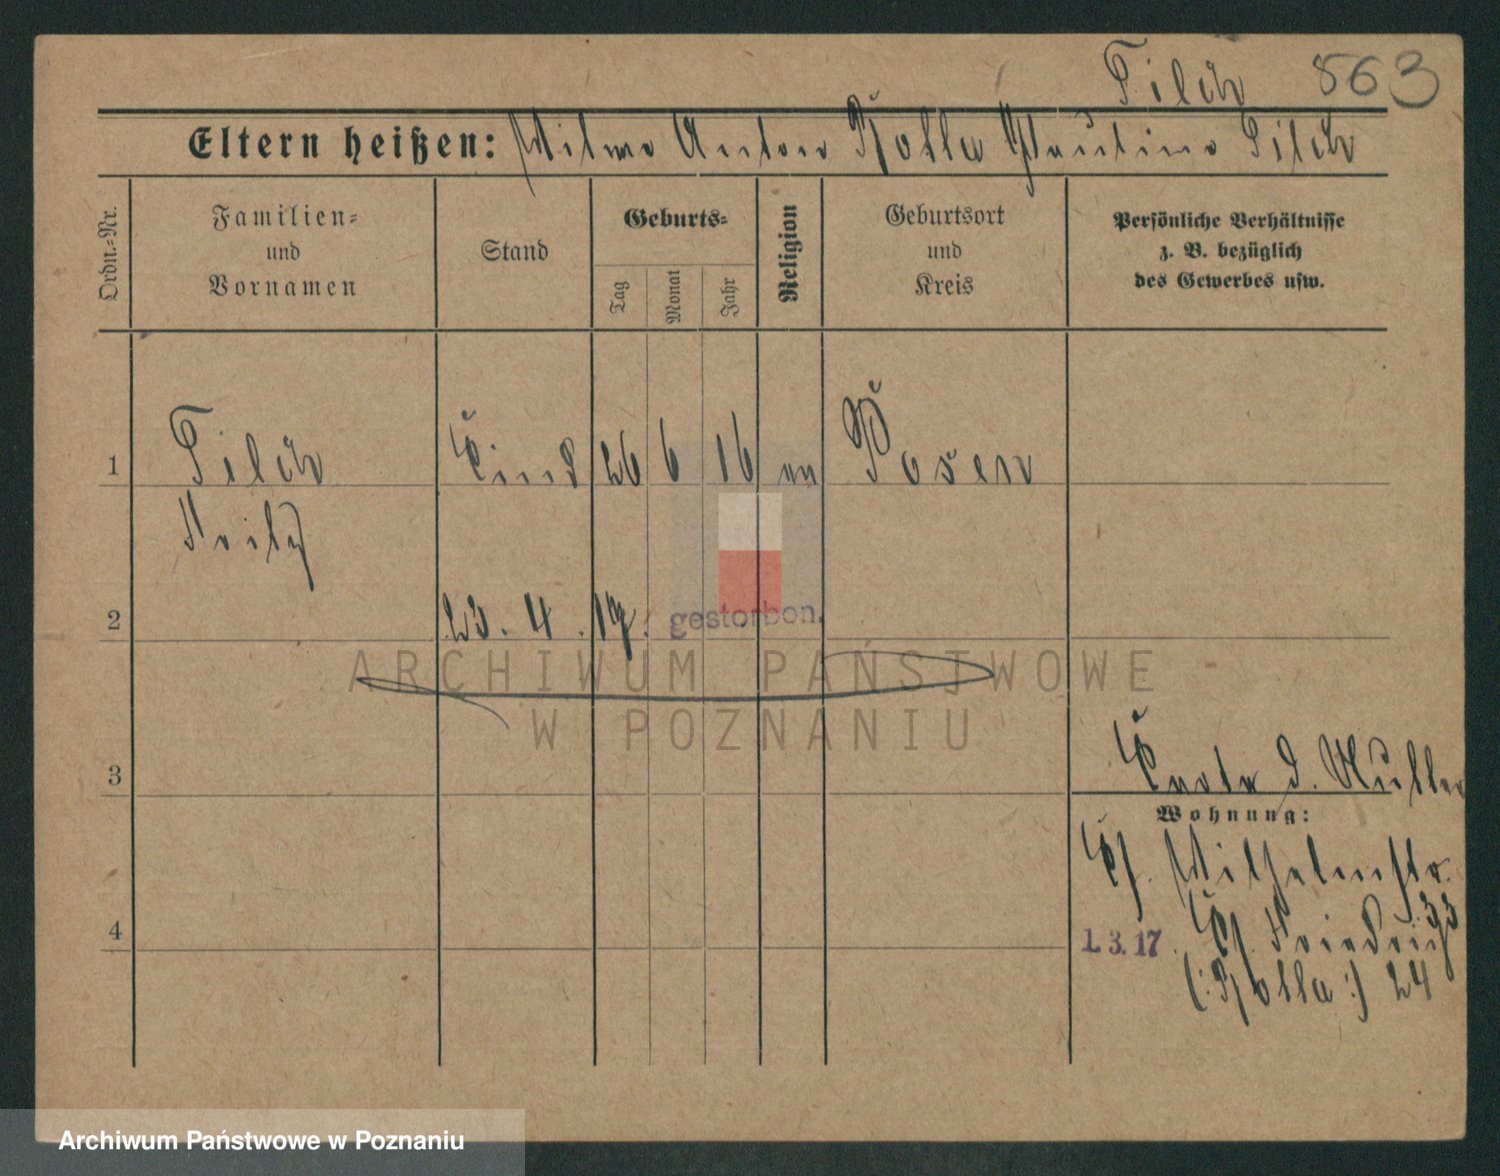 Pilch 563
Eltern heißen: Witwe Anton Rolla Pauline Pilch
Ordn.-Nr.
Familien-
und
Vornamen
Stand
Geburts-
Tag
Monat
Jahr
Religion
Geburtsort
und
Kreis
Persönliche Verhältnisse
z. B. bezüglich
des Gewerbes usw.
1 Pilch Kind 26 6 16 Posen
Fritz
2 23. 4. 17. gestorben.
ARCHIWUM PAŃSTWOWE
W POZNANIU
3
d. Mutter
Wohnung:
Wilhelmstr.
33
4
1. 3. 17. Friedrich
(: Rolla :) 24
Archiwum Państwowe w Poznaniu